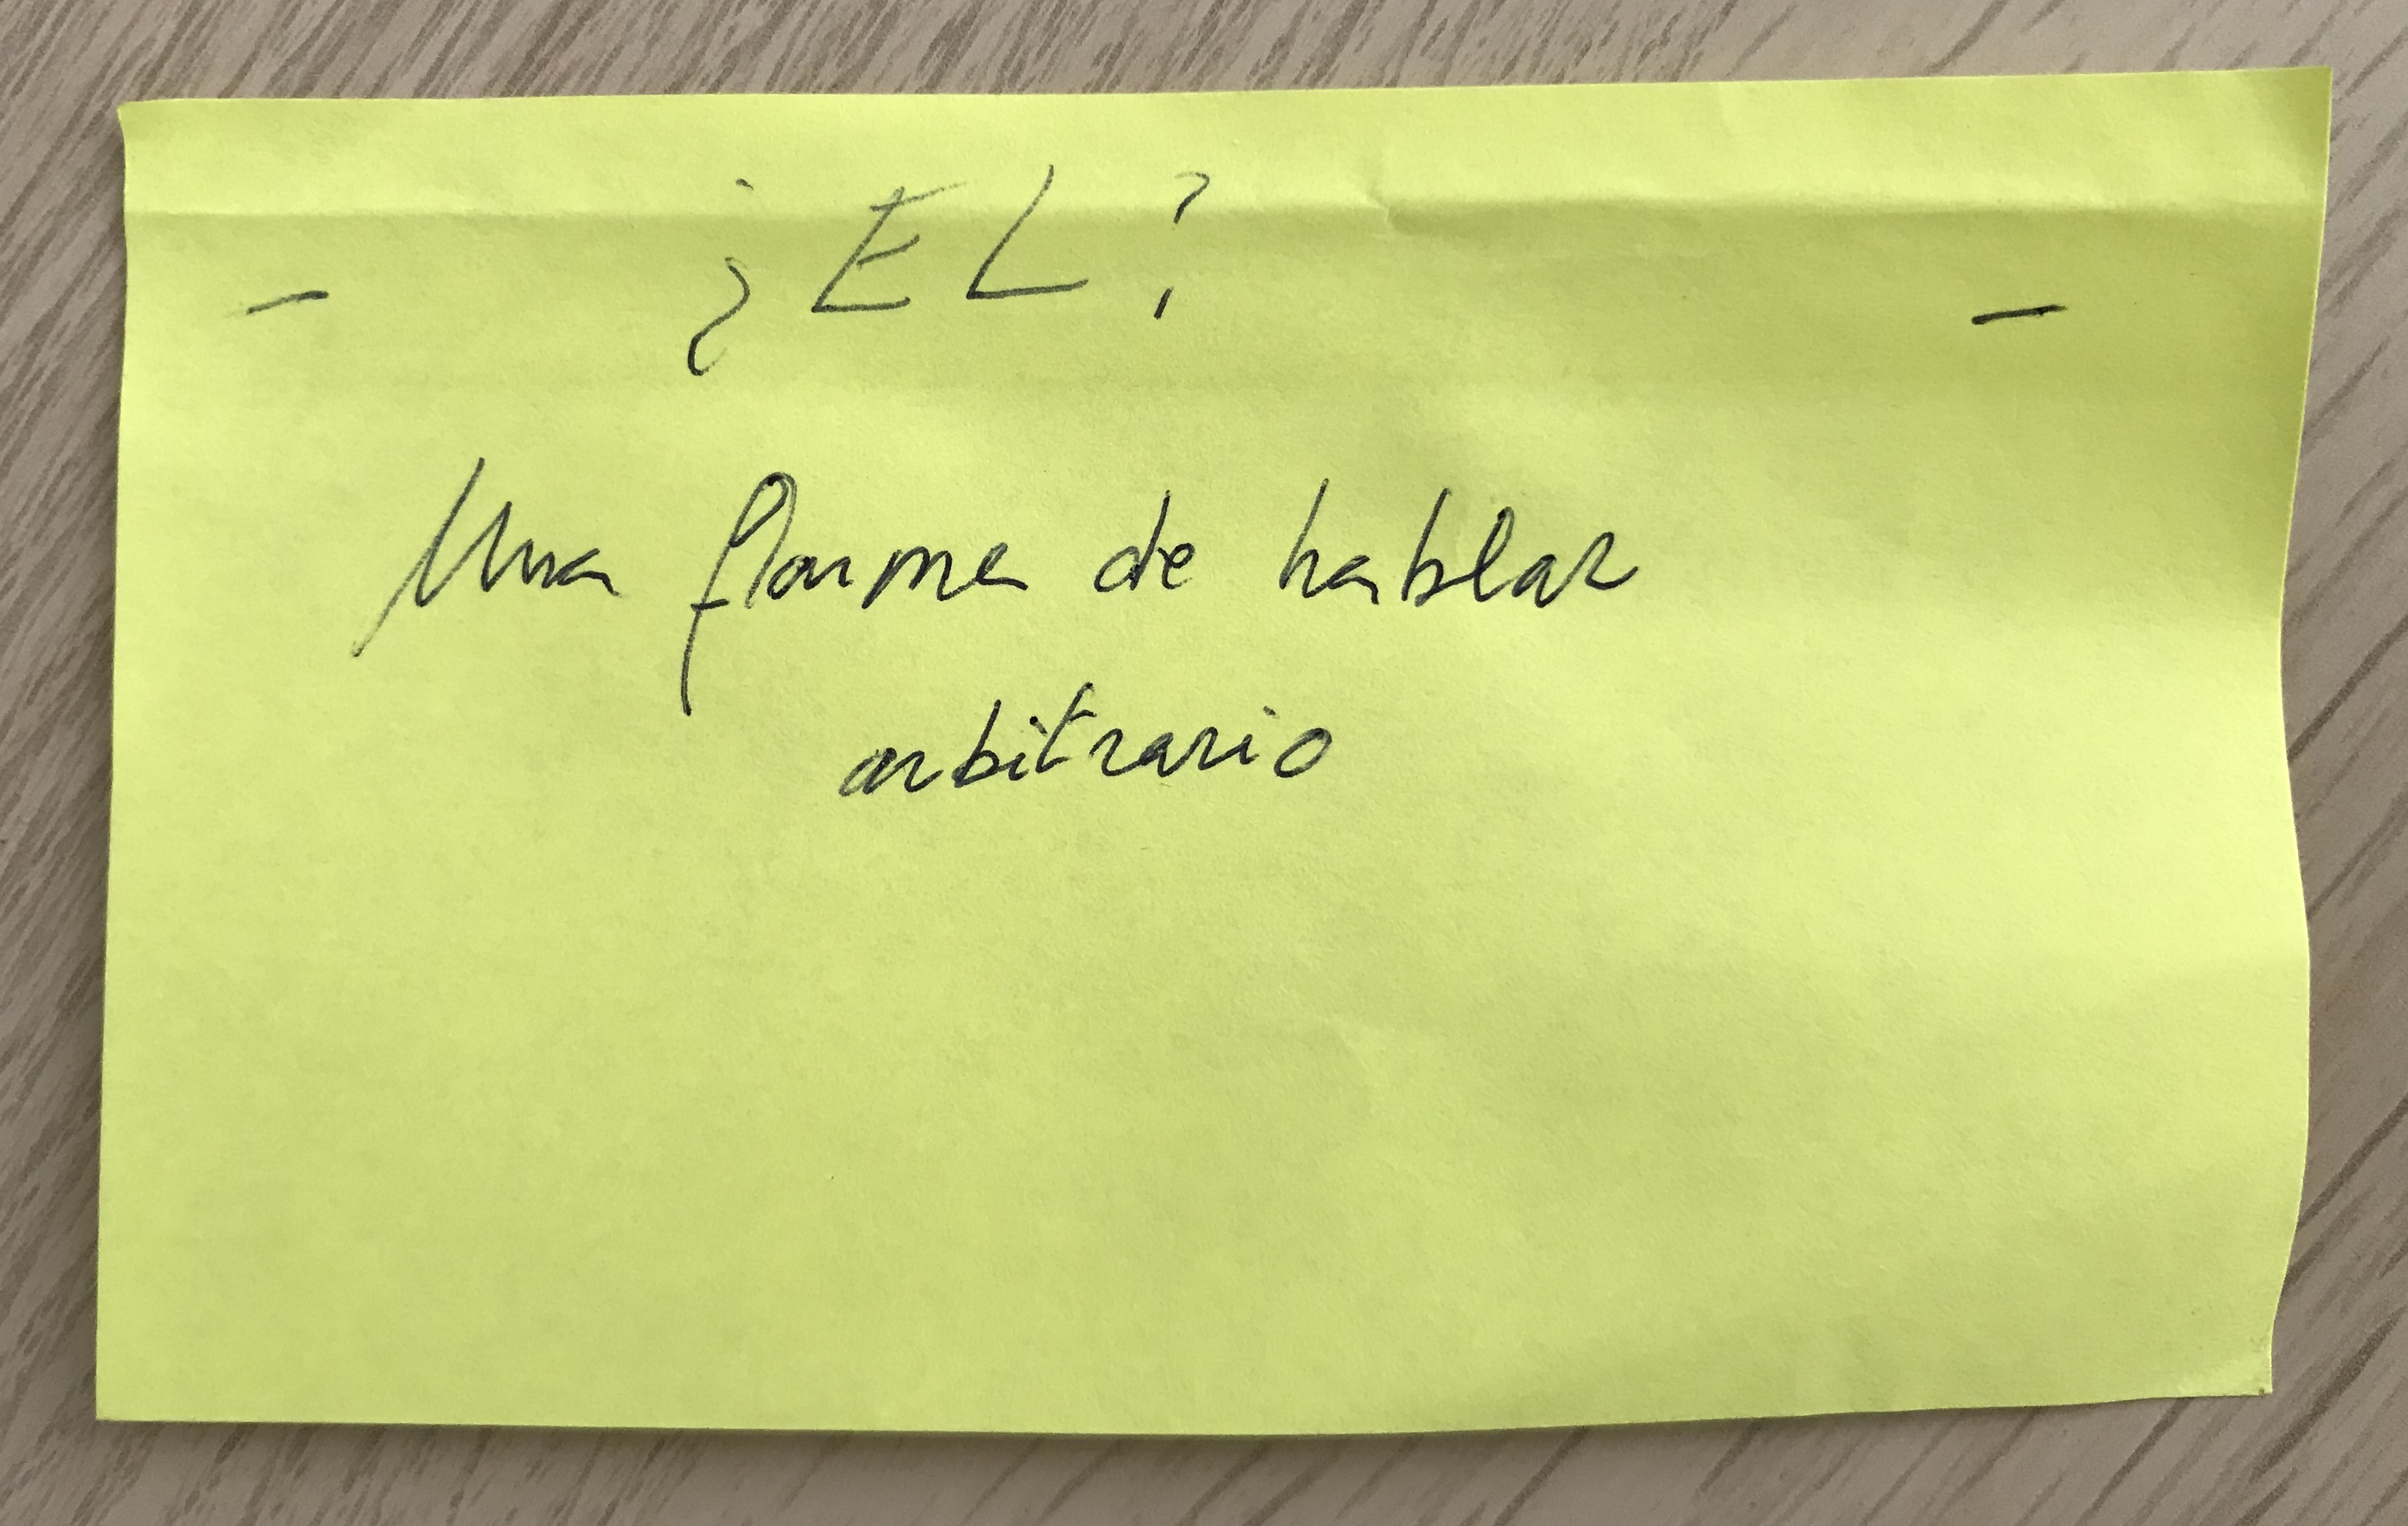 - ¿EL? -
Una forma de hablar
arbitrario